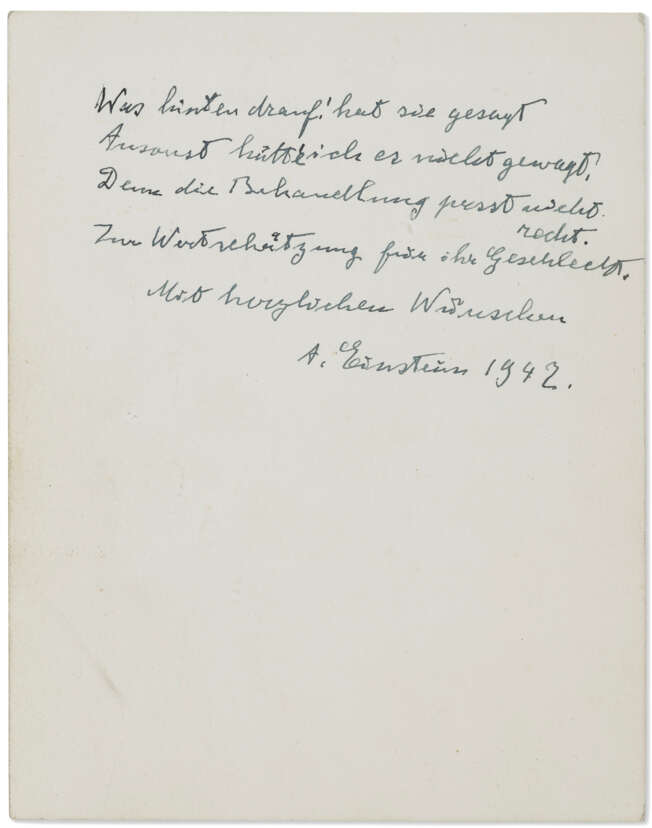 Was hinten drauf! hat sie gesagt
Ansonst hätt' ich es nicht gewagt,
Denn die Behandlung passt nicht
recht.
Zur Wertschätzung für ihr Geschlecht.
Mit herzlichen Wünschen
A. Einstein 1942.